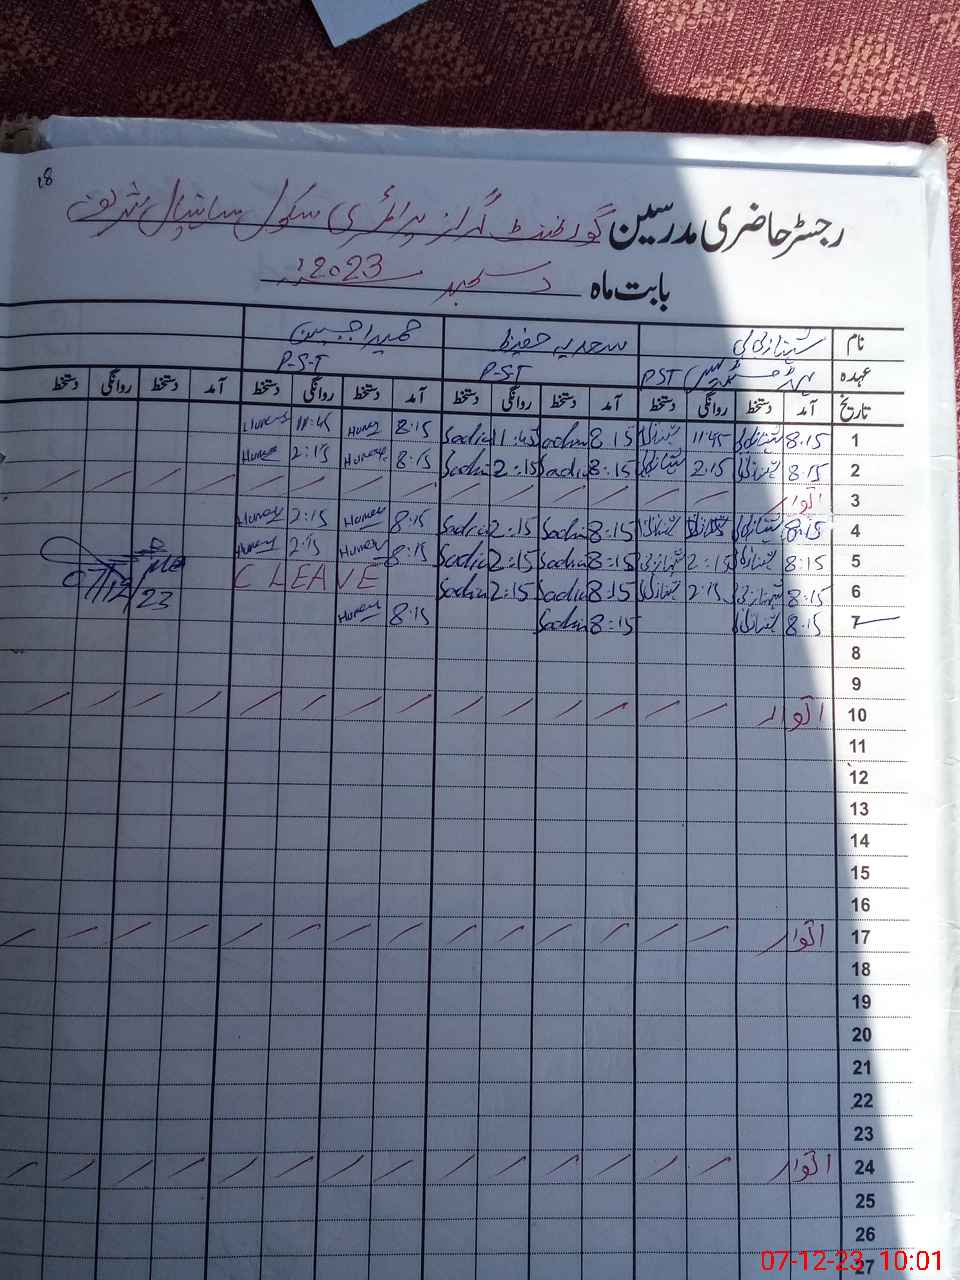 18
رجسٹر حاضری مدرسین گورنمنٹ گرلز پرائمری سکول سانپال شریف
بابت ماہ دسمبر 2023ء
نام شہناز بی بی سعدیہ حفیظ حمیرا جبین
عہدہ ہیڈ مسٹریس PST P-S-T P-S-T
تاریخ آمد دستخط روانگی دستخط آمد دستخط روانگی دستخط آمد دستخط روانگی دستخط آمد دستخط روانگی دستخط
1 8:15 11:45 8:15 Sadia 11:45 Sadia 8:15 11:45
2 8:15 2:15 8:15 Sadia 2:15 Sadia 8:15 2:15
3 اتوار
4 8:15 8:15 Sadia 2:15 Sadia 8:15 2:15
5 8:15 2:15 8:15 Sadia 2:15 Sadia 8:15 2:15
6 8:15 2:15 8:15 Sadia 2:15 Sadia C LEAVE
7 8:15 8:15 Sadia 8:15
8
9
10 اتوار
11
12
13
14
15
16
17 اتوار
18
19
20
21
22
23
24 اتوار
25
26
27
07-12-23 10:01